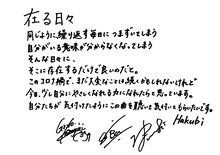 在る日々
同じように繰り返す毎日につまずいてしまう
自分がいる意味が分からなくなってしまう
そんな日々に、
そこに存在するだけで良いのだと。
このコロナ禍で、まだ大変なことは続くかもしれないけれど
今日、少し自分にやさしくなれる力になれたらと思っています。
自分たちが気付けたようにこの曲を聴いて気付いてもらいたいです。
Hakubi